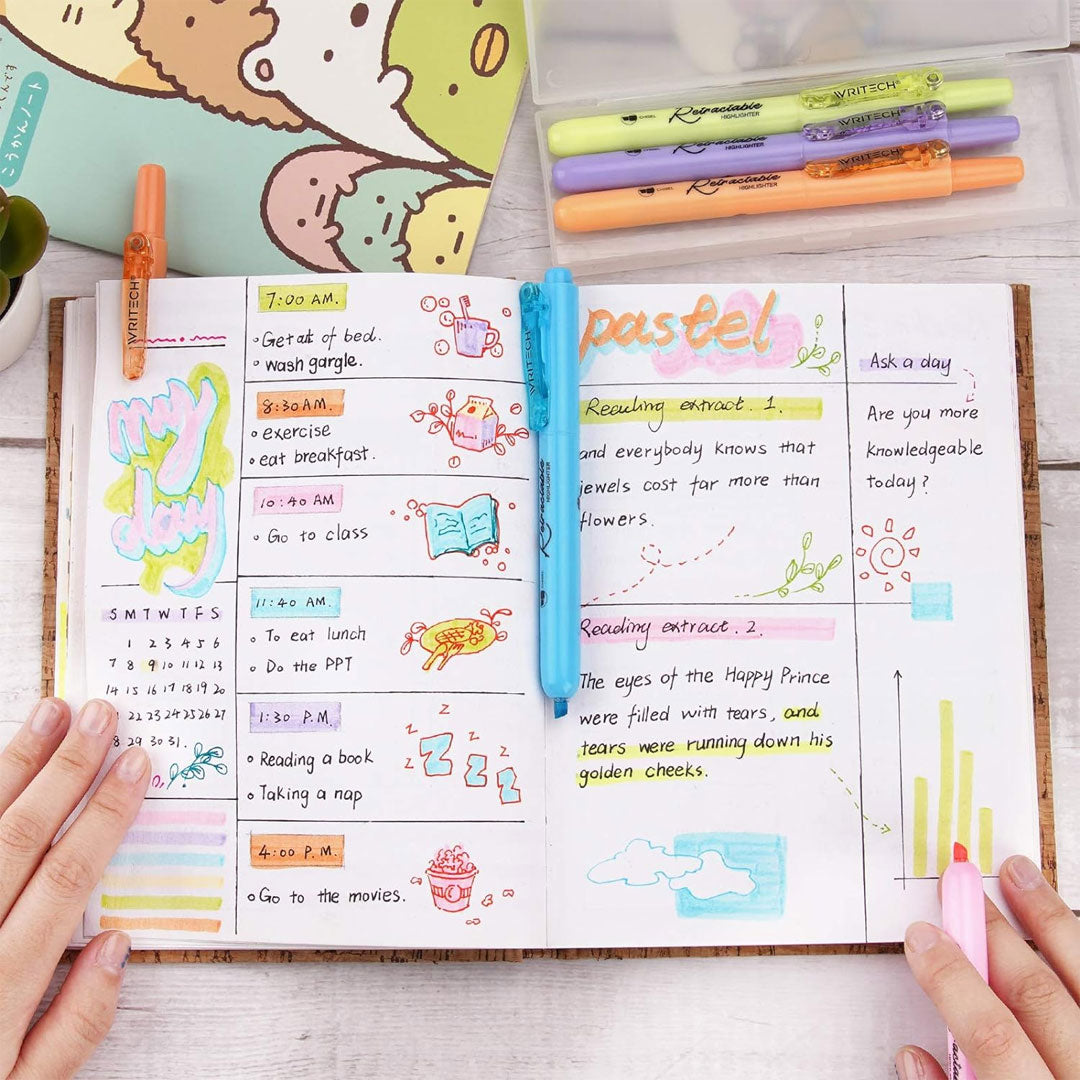 こうかんノート
WRITECH
Retractable
HIGHLIGHTER
WRITECH
CHISEL
Retractable
HIGHLIGHTER
WRITECH
CHISEL
Retractable
HIGHLIGHTER
WRITECH
WRITECH
Retractable
HIGHLIGHTER
my
day
S M T W T F S
1 2 3 4 5 6
7 8 9 10 11 12 13
14 15 16 17 18 19 20
22 23 24 25 26 27
29 30 31.
7:00 AM.
Get out of bed.
wash gargle.
8:30 AM.
exercise
eat breakfast.
10:40 AM
Go to class
11:40 AM.
To eat lunch
Do the PPT
1:30 P.M.
Reading a book
Taking a nap
z
z
z
z
z
Z
Z
Z
4:00 P.M.
Go to the movies.
pastel
Reading extract. 1.
and everybody knows that
jewels cost far more than
flowers.
Reading extract. 2.
The eyes of the Happy Prince
were filled with tears, and
tears were running down his
golden cheeks.
Ask a day
Are you more
knowledgeable
today?